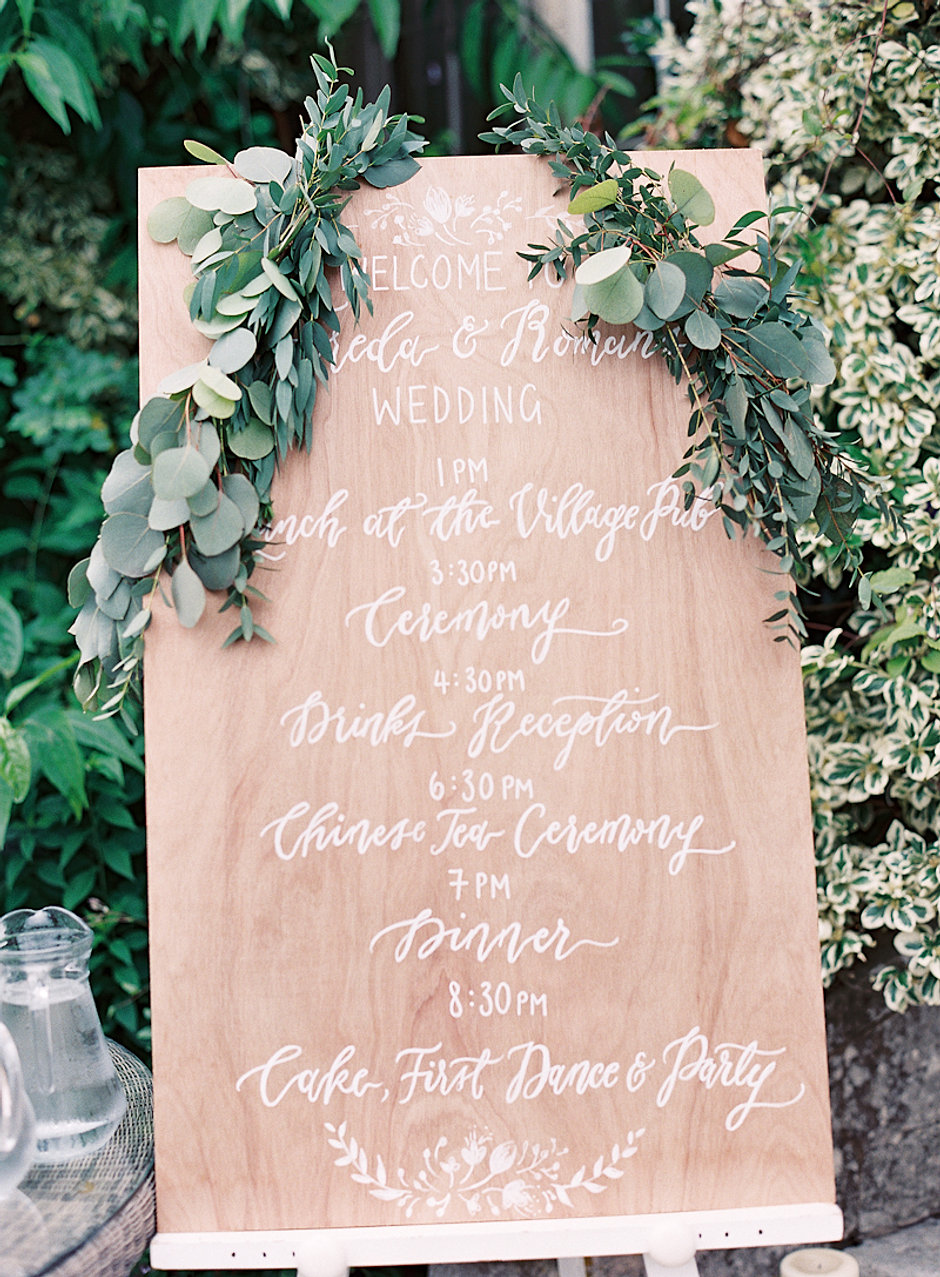 WELCOME TO
& Roman
WEDDING
1PM
Lunch at the Village Pub
3:30PM
Ceremony
4:30PM
Drinks Reception
6:30PM
Chinese Tea Ceremony
7PM
Dinner
8:30PM
Cake, First Dance & Party